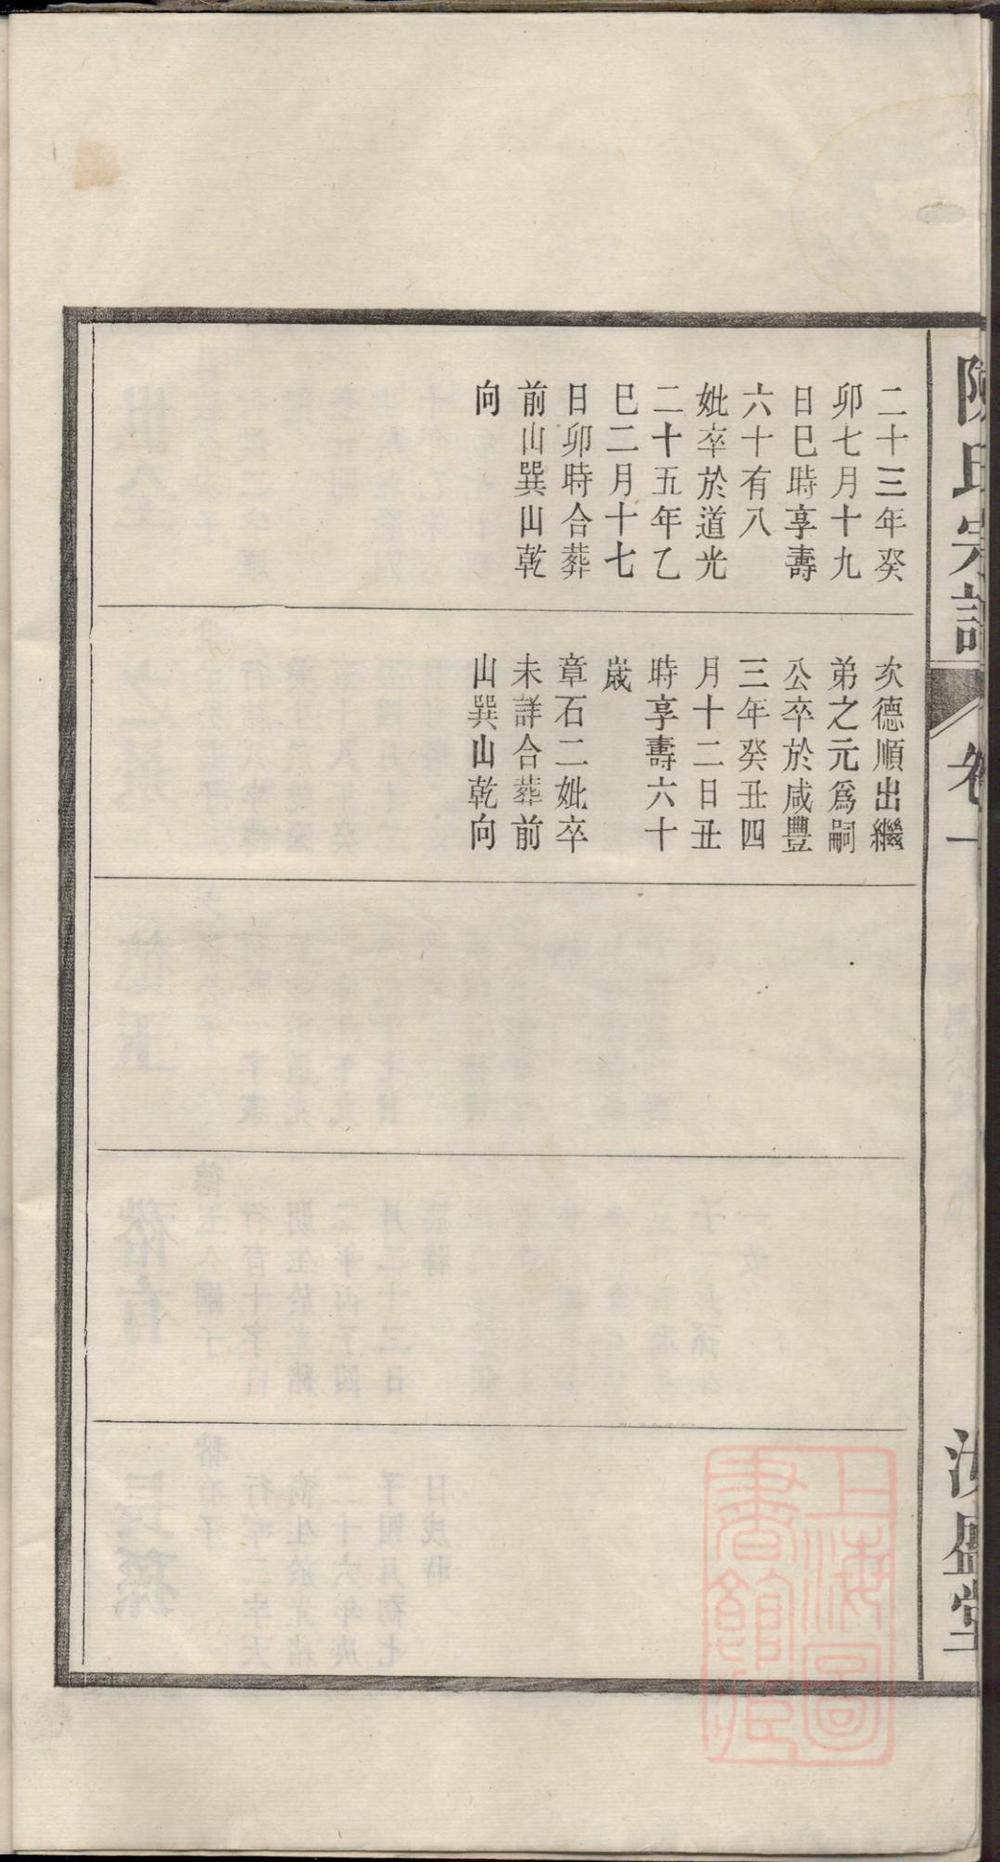 陳氏宗譜
卷一
二十三年癸
卯七月十九
日巳時享壽
六十有八
妣卒於道光
二十五年乙
巳二月十七
日卯時合葬
前山巽山乾
向
次德順出繼
弟之元爲嗣
公卒於咸豐
三年癸丑四
月十二日丑
時享壽六十
歲
章石二妣卒
未詳合葬前
山巽山乾向
盛堂
上海圖
書館藏